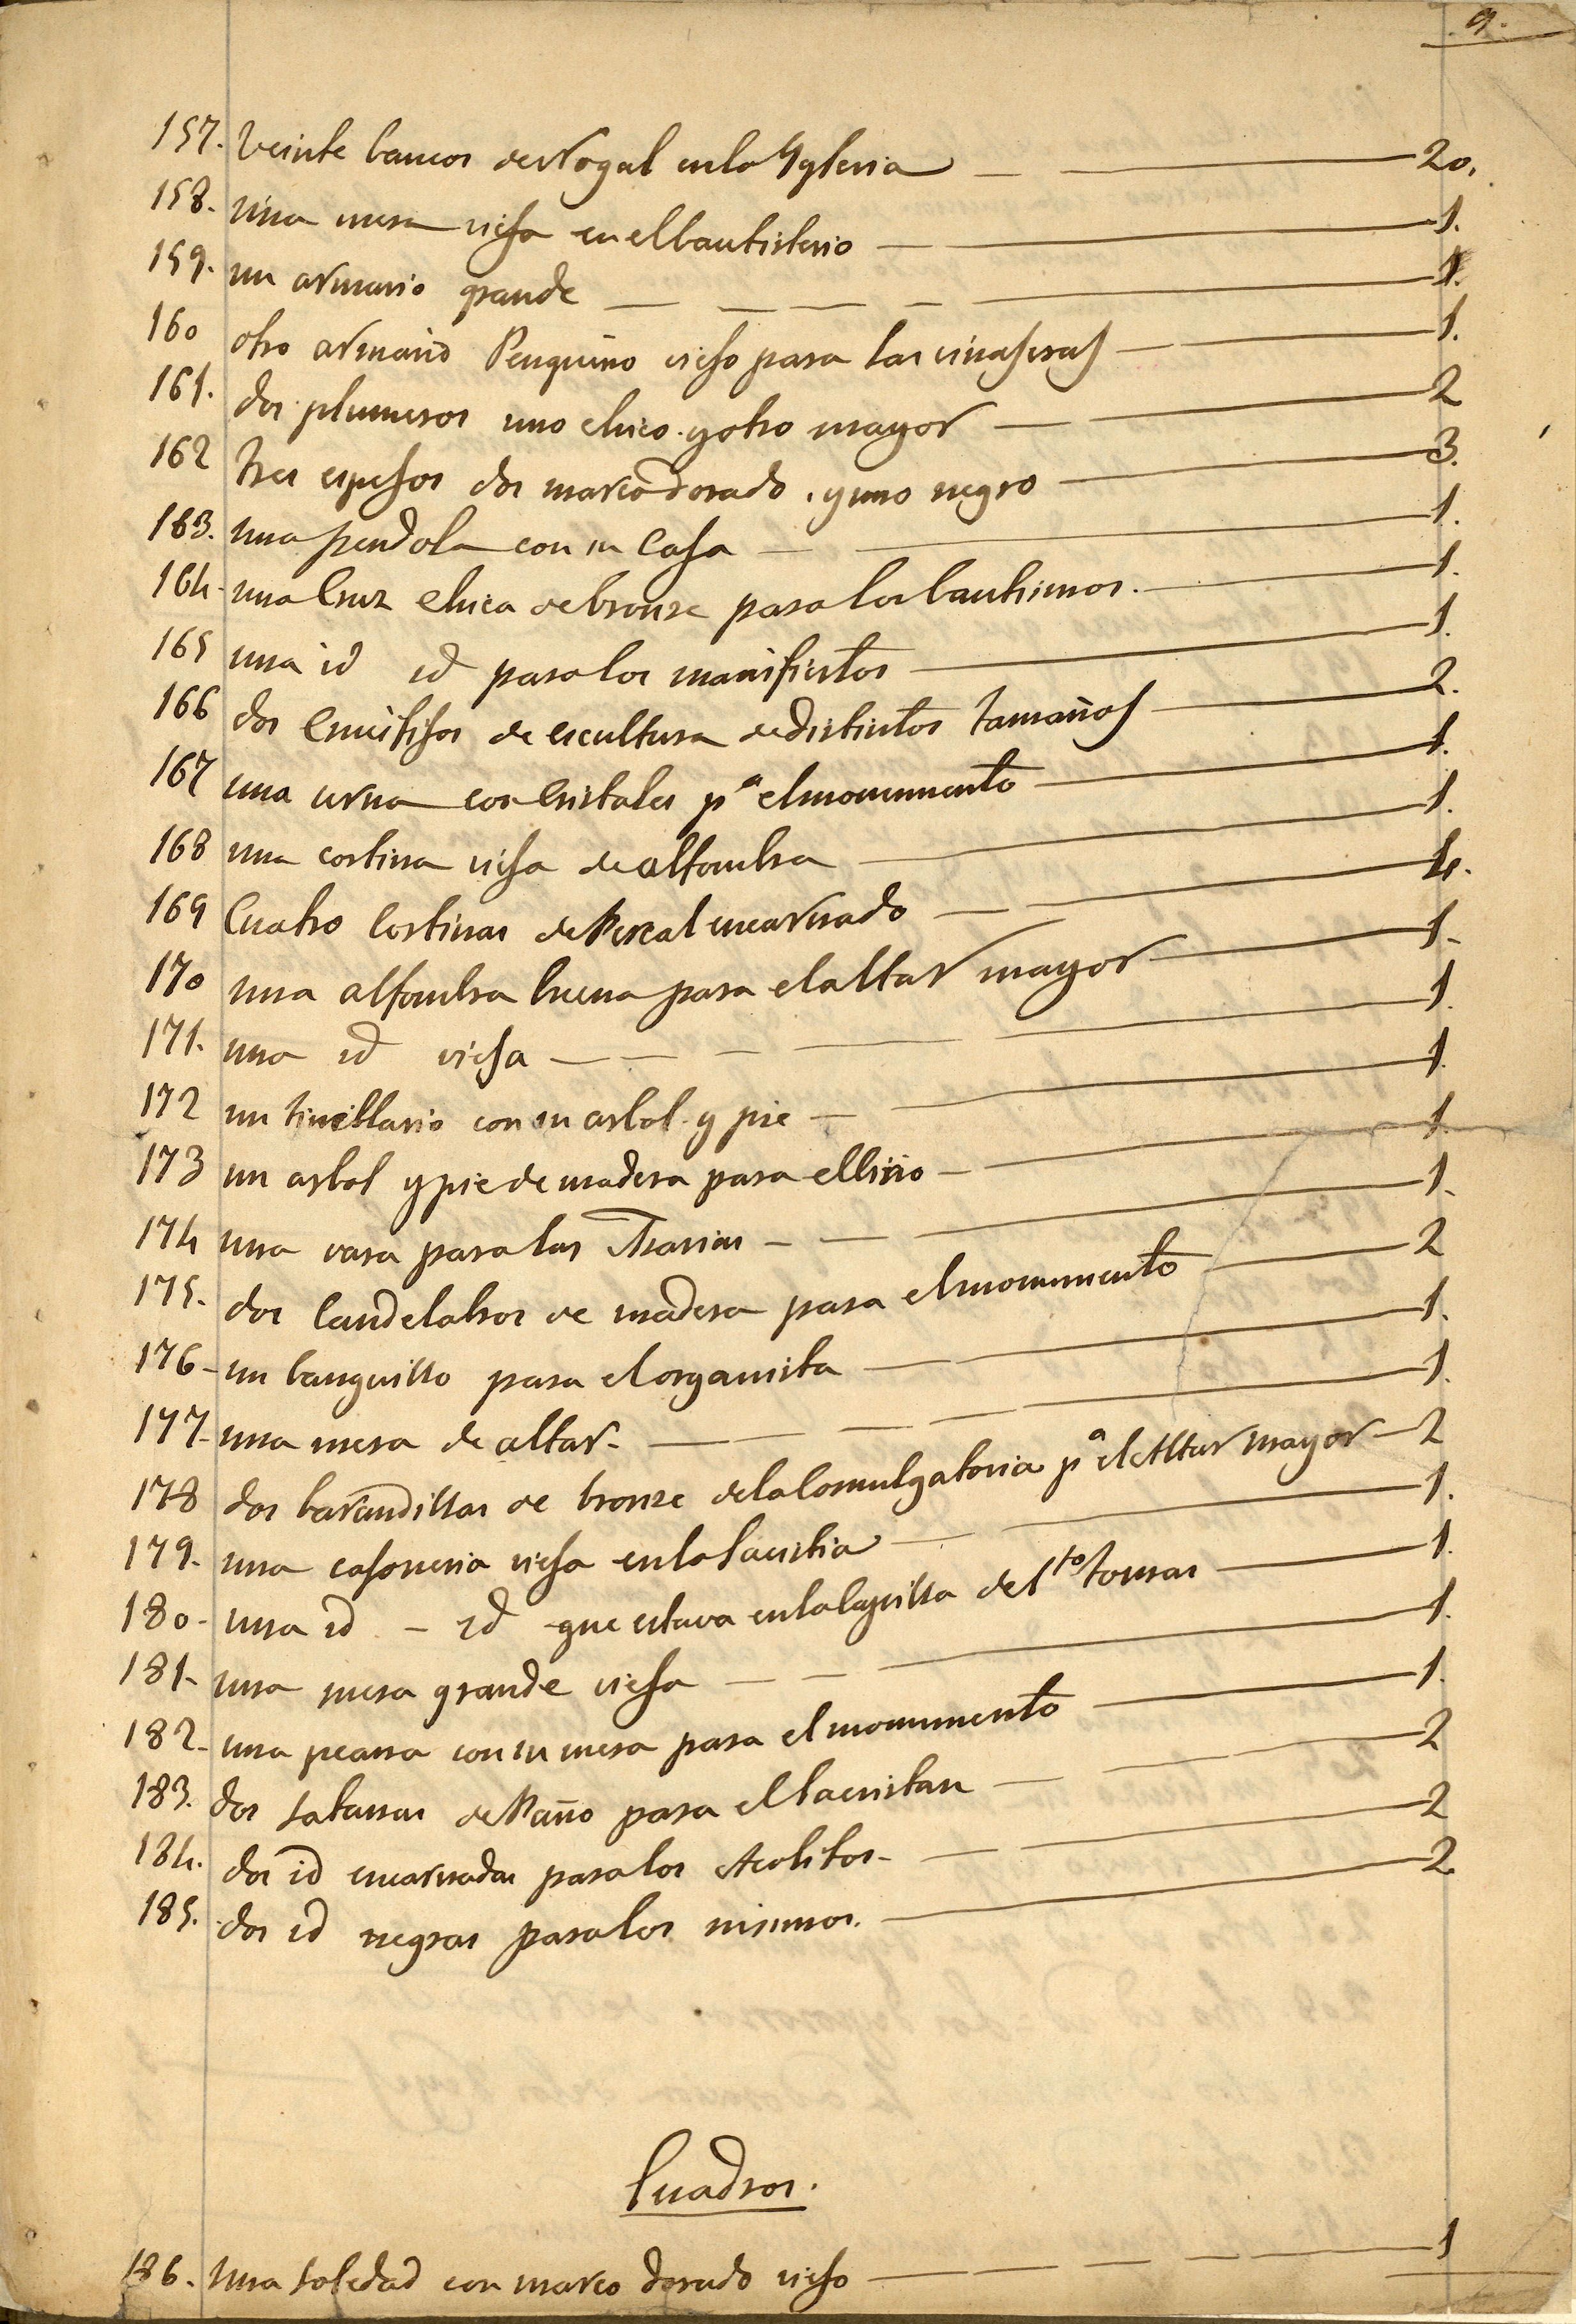 9.
157. Veinte bancos de Nogal en la Yglesia — 20.
158. una mesa viefa en el bautisterio — 1.
159. un armario grande — 1.
160 otro armario Penquino viefo para las vinaferas — 1.
161. dos plumeros uno chico y otro mayor — 2
162 tres espefos dos marco dorado . y uno negro — 3.
163. una pendola con su Cafa — 1.
164. una Cruz chica de bronze para los bautismos. — 1.
165 una id id para los manifiestos — 1.
166 dos Crucififos de escultura de distintos tamaños — 2.
167 una urna con Cristales pª el monumento — 1.
168 una cortina viefa de alfombra — 1.
169 Cuatro Cortinas de Percal encarnado — 4.
170 una alfombra buena para el altar mayor — 1.
171. una id viefa — 1.
172 un tinieblario con su arbol y pie — 1.
173 un arbol y pie de madera para el lirio — 1.
174 una vara para las Marias — 1.
175. dos Candelabros de madera para el monumento — 2
176 - un banquillo para el organista — 1.
177. una mesa de altar. — 1.
178 dos barandillas de bronze de la Comulgatoria pª el Altar mayor — 2
179. una cafoneria viefa en la Sacristia — 1.
180 - una id - id que estava en la Capilla del Sto Tomas — 1.
181 - una mesa grande viefa — 1.
182 - una peana con su mesa para el monumento — 1.
183. dos sotanas de Paño para el Sacristan — 2
184. dos id encarnadas para los Acolitos - — 2
185. dos id negras para los mismos. — 2
Cuadros.
186. una Soledad con marco dorado viefo — 1